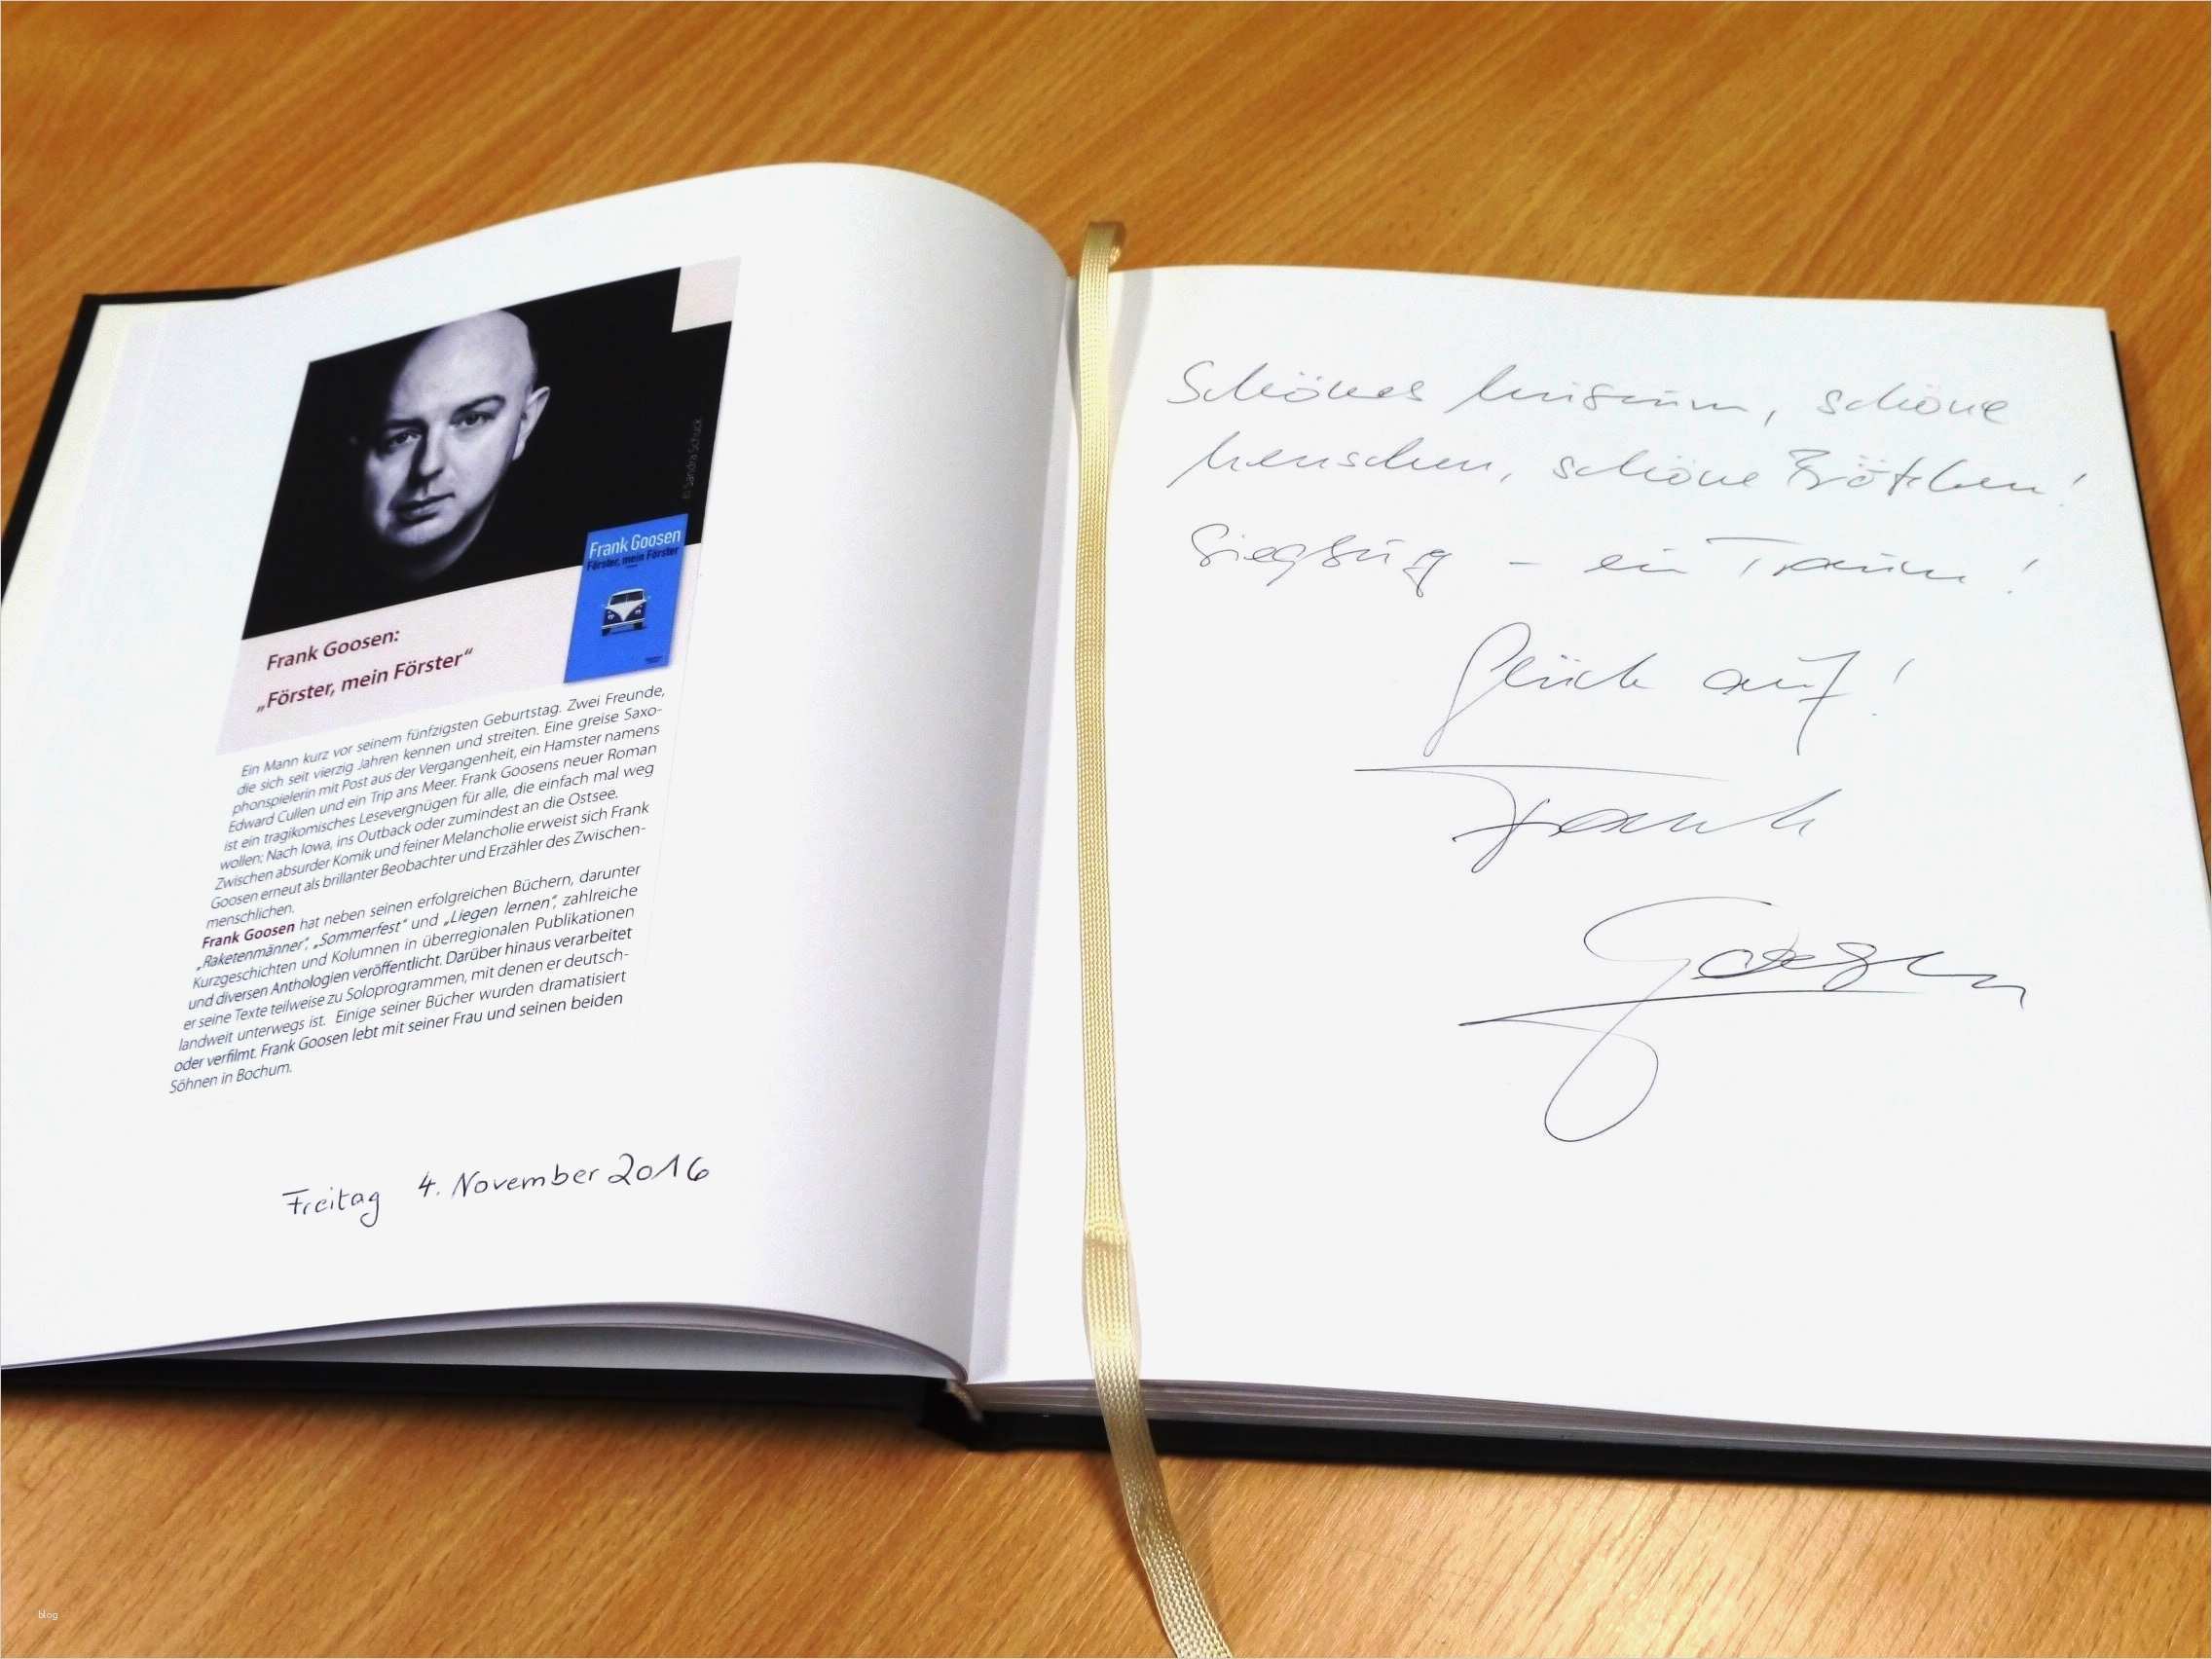 © Sandra Schuck
Frank Goosen
Förster, mein Förster
Frank Goosen:
„Förster, mein Förster“
Ein Mann kurz vor seinem fünfzigsten Geburtstag. Zwei Freunde,
die sich seit vierzig Jahren kennen und streiten. Eine greise Saxo-
phonspielerin mit Post aus der Vergangenheit, ein Hamster namens
Edward Cullen und ein Trip ans Meer. Frank Goosens neuer Roman
ist ein tragikomisches Lesevergnügen für alle, die einfach mal weg
wollen: Nach Iowa, ins Outback oder zumindest an die Ostsee.
Zwischen absurder Komik und feiner Melancholie erweist sich Frank
Goosen erneut als brillanter Beobachter und Erzähler des Zwischen-
menschlichen.
Frank Goosen hat neben seinen erfolgreichen Büchern, darunter
„Raketenmänner“, „Sommerfest“ und „Liegen lernen“, zahlreiche
Kurzgeschichten und Kolumnen in überregionalen Publikationen
und diversen Anthologien veröffentlicht. Darüber hinaus verarbeitet
er seine Texte teilweise zu Soloprogrammen, mit denen er deutsch-
landweit unterwegs ist. Einige seiner Bücher wurden dramatisiert
oder verfilmt. Frank Goosen lebt mit seiner Frau und seinen beiden
Söhnen in Bochum.
Freitag 4. November 2016
Schönes Museum, schöne
Menschen, schöne Brötchen!
Siegburg – ein Traum!
Glück auf!
Frank
Goosen
blog